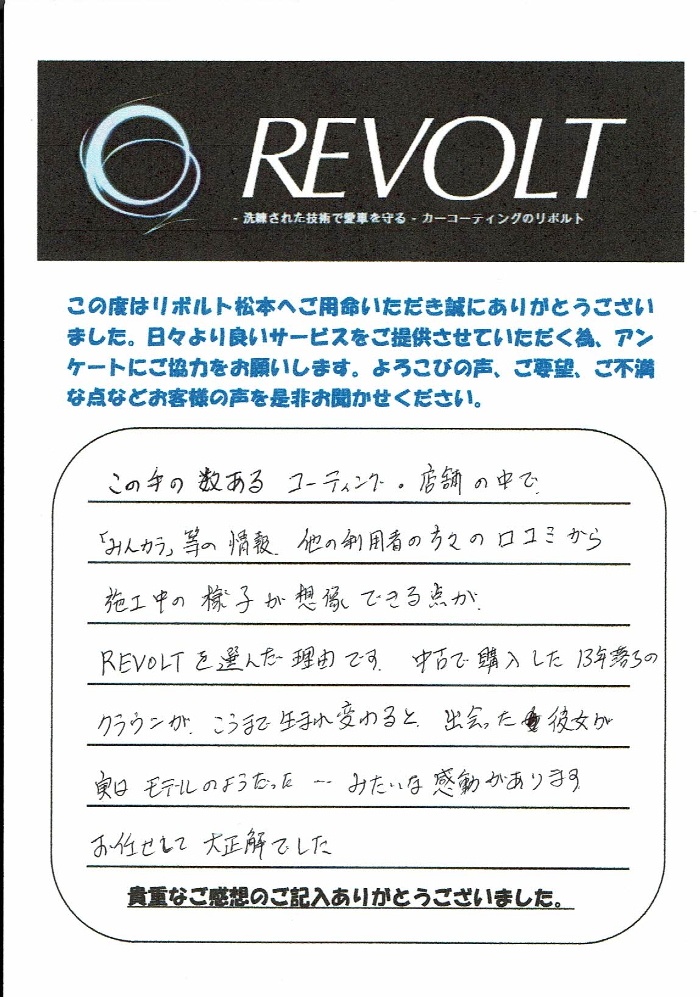 REVOLT
- 洗練された技術で愛車を守る - カーコーティングのリボルト
この度はリボルト松本へご用命いただき誠にありがとうござい
ました。日々より良いサービスをご提供させていただく為、アン
ケートにご協力をお願いします。よろこびの声、ご要望、ご不満
な点などお客様の声を是非お聞かせください。
この手の数ある コーティング。店舗の中で、
「みんカラ」等の情報、他の利用者の方々の口コミから
施工中の様子が想像できる点が、
REVOLTを選んだ理由です。中古で購入した13年落ちの
クラウンが、こうまで生まれ変わると、出会った彼女が
実は モデルのようだった … みたいな感動があります
お任せして 大正解でした
貴重なご感想のご記入ありがとうございました。